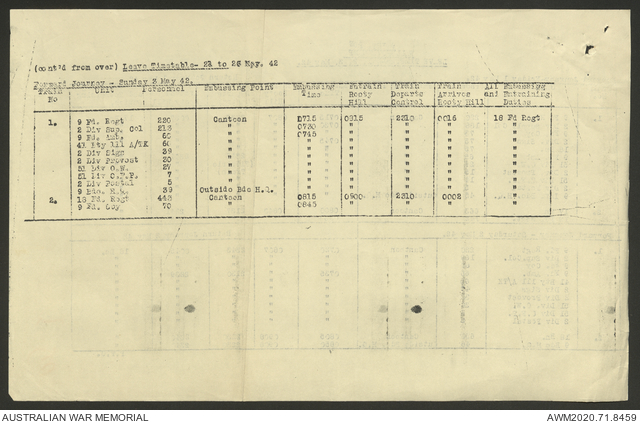 (cont'd from over) Leave Timetable- 23 to 26 May. 42
Forward Journey - Sunday 3 May 42.
Train No UNIT Personnel Embussing Point Embussing Time Entrain Rooty Hill Train Departs Central Train Arrives Rooty Hill All Embussing and Entraining Duties
1. 9 Fd. Regt 230 Canteen 0715 0815 2310 0015 18 Fd Regt
2 Div Sup. Col 213 " 0730 " " " "
9 Fd. Amb. 65 " 0745 " " " "
41 Bty 111 A/TK 60 " " " " " "
2 Div Sigs 39 " " " " " "
2 Div Provost 30 " " " " " "
51 Div O.W. 27 " " " " " "
51 Div C.P.P. 7 " " " " " "
2 Div Postal 5 " " " " " "
9 Bde. H.Q. 39 Outside Bde H.Q. " " " " "
2. 18 Fd. Regt 443 Canteen 0815 0900 2310 0002 "
9 Fd. Coy 70 " 0845 " " " "
AUSTRALIAN WAR MEMORIAL AWM2020.71.8459